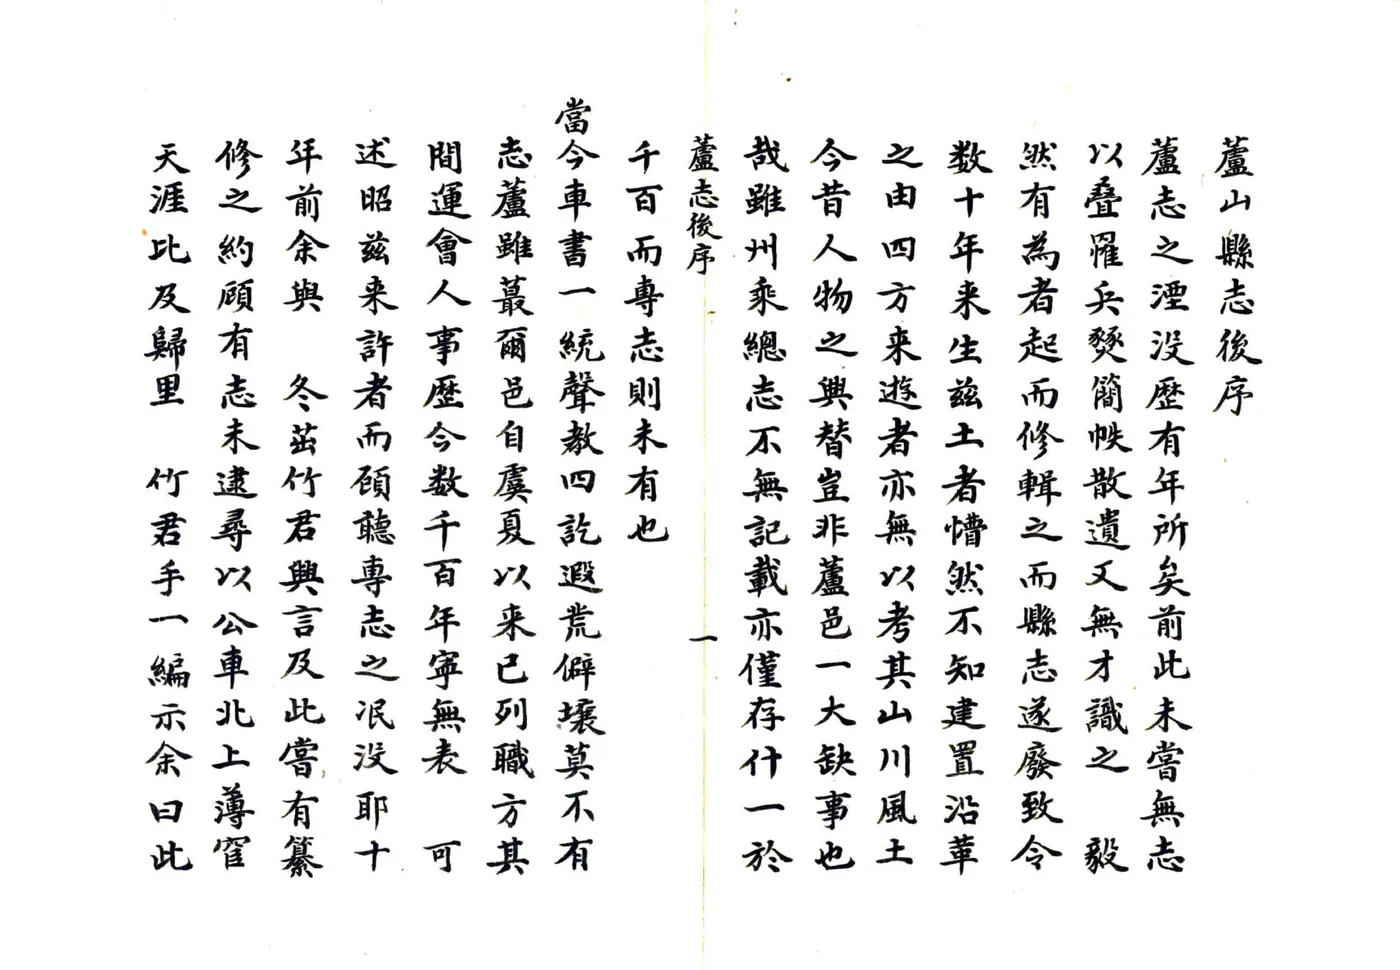 蘆山縣志後序
蘆志之湮没歴有年所矣前此未嘗無志
以叠罹兵燹簡帙散遺又無才識之 毅
然有為者起而修輯之而縣志遂廢致令
数十年来生兹土者懵然不知建置沿革
之由四方来遊者亦無以考其山川風土
今昔人物之興替豈非蘆邑一大缺事也
哉雖州乘總志不無記載亦僅存什一於
蘆志後序 一
千百而專志則未有也
當今車書一統聲教四訖遐荒僻壤莫不有
志蘆雖蕞爾邑自虞夏以来已列職方其
間運會人事歴今数千百年寧無表 可
述昭兹来許者而顧聽專志之泯没耶十
年前余與 冬茁竹君興言及此嘗有纂
修之約顧有志未逮尋以公車北上薄宦
天涯比及歸里 竹君手一編示余曰此